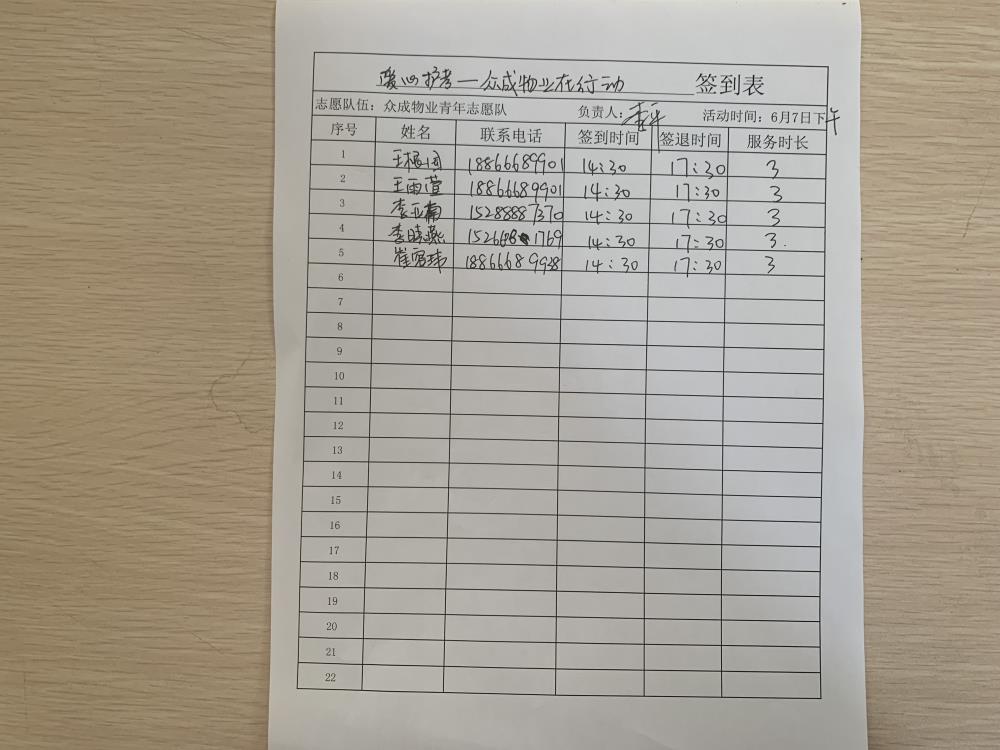 暖心护考—众成物业在行动 签到表
志愿队伍：众成物业青年志愿队 负责人：李平 活动时间：6月7日下午
序号 姓名 联系电话 签到时间 签退时间 服务时长
1 王根图 18866689901 14:30 17:30 3
2 王雨萱 18866689901 14:30 17:30 3
3 李亚楠 15288887370 14:30 17:30 3
4 李晓燕 14:30 17:30 3
5 崔雪玮 18866689928 14:30 17:30 3
6
7
8
9
10
11
12
13
14
15
16
17
18
19
20
21
22